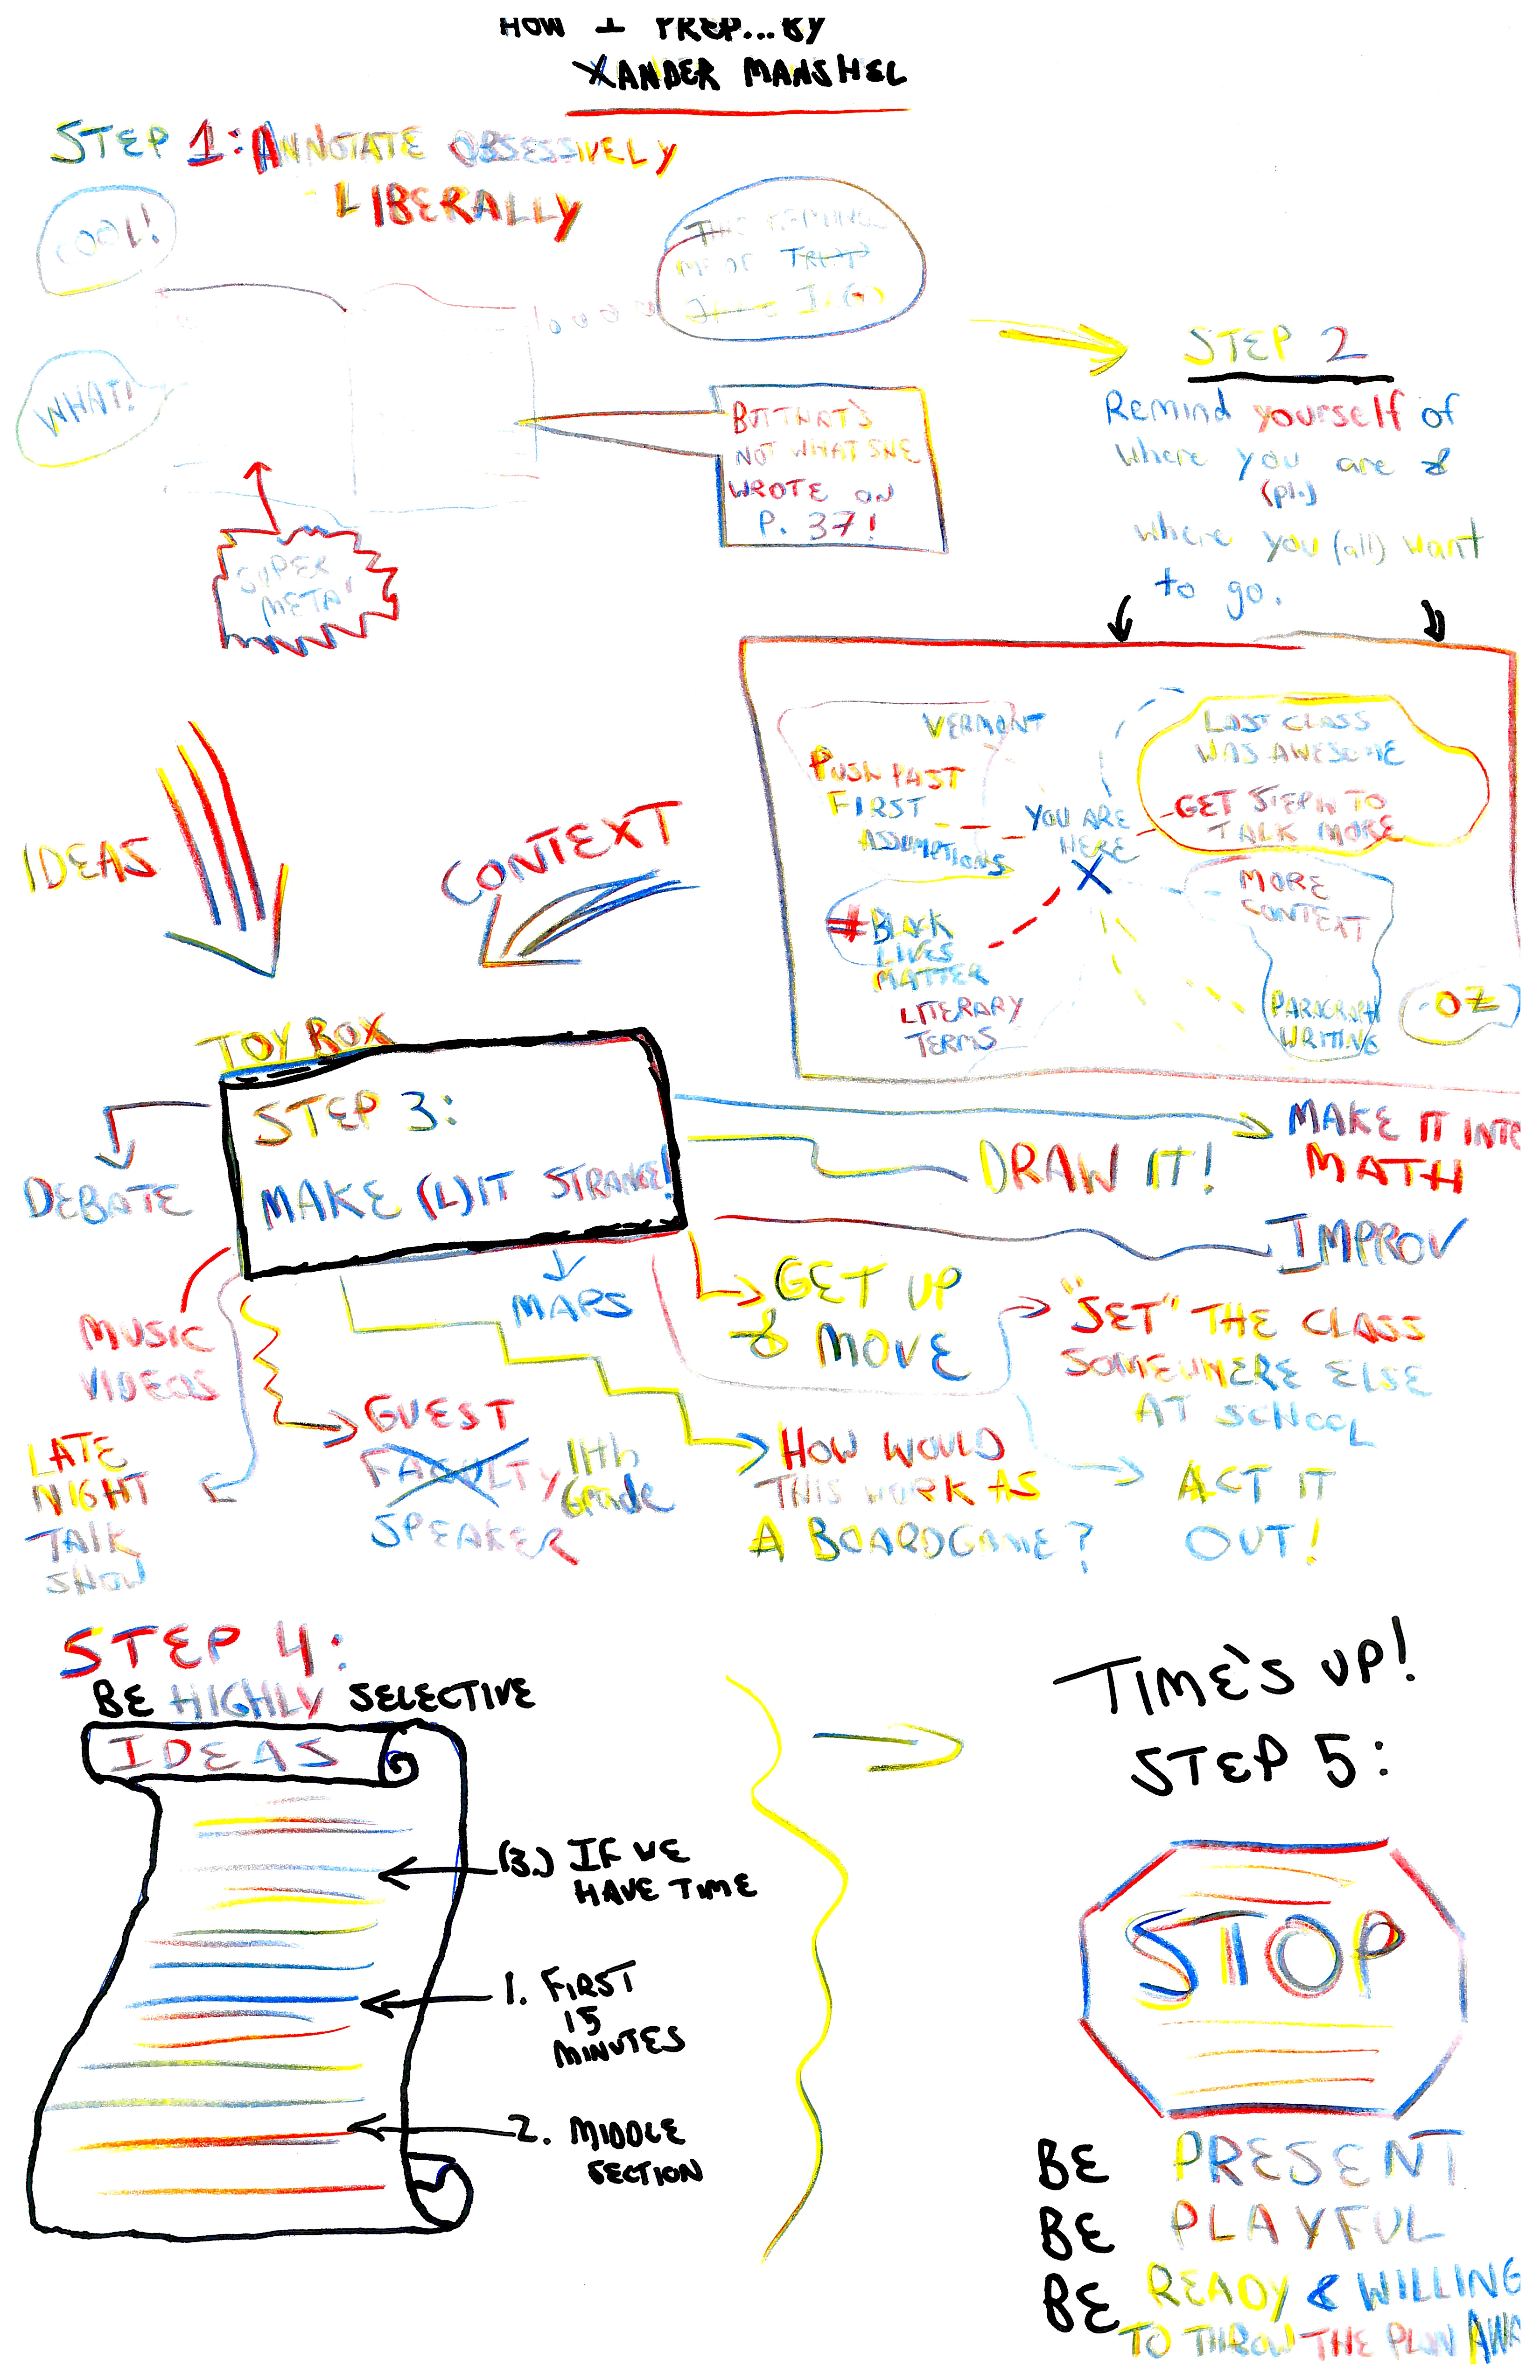 HOW I PREP... BY
XANDER MANSHEL
STEP 1: ANNOTATE OBSESSIVELY
LIBERALLY
COOL!
THIS REMINDS
ME OF
WHAT!
BUT THAT'S
NOT WHAT SHE
WROTE ON
P. 37!
SUPER
META!
STEP 2
Remind yourself of
where you are &
(pl.)
where you (all) want
to go.
VERMONT
PUSH PAST
FIRST
ASSUMPTIONS
YOU ARE
HERE
X
LAST CLASS
WAS AWESOME
GET STEPH TO
TALK MORE
MORE
CONTEXT
PARAGRAPH
WRITING
OZ
#BLACK
LIVES
MATTER
LITERARY
TERMS
IDEAS
CONTEXT
TOY BOX
STEP 3:
MAKE (L)IT STRANGE!
DEBATE
MAKE IT INTO
MATH
DRAW IT!
IMPROV
MUSIC
VIDEOS
MAPS
GET UP
& MOVE
"SET" THE CLASS
SOMEWHERE ELSE
AT SCHOOL
LATE
NIGHT
TALK
SHOW
GUEST
FACULTY 11th
GRADE
SPEAKER
HOW WOULD
THIS WORK AS
A BOARDGAME?
ACT IT
OUT!
STEP 4:
BE HIGHLY SELECTIVE
IDEAS
(3.) IF WE
HAVE TIME
1. FIRST
15
MINUTES
2. MIDDLE
SECTION
TIME'S UP!
STEP 5:
STOP
BE PRESENT
BE PLAYFUL
BE READY & WILLING
TO THROW THE PLAN AWA